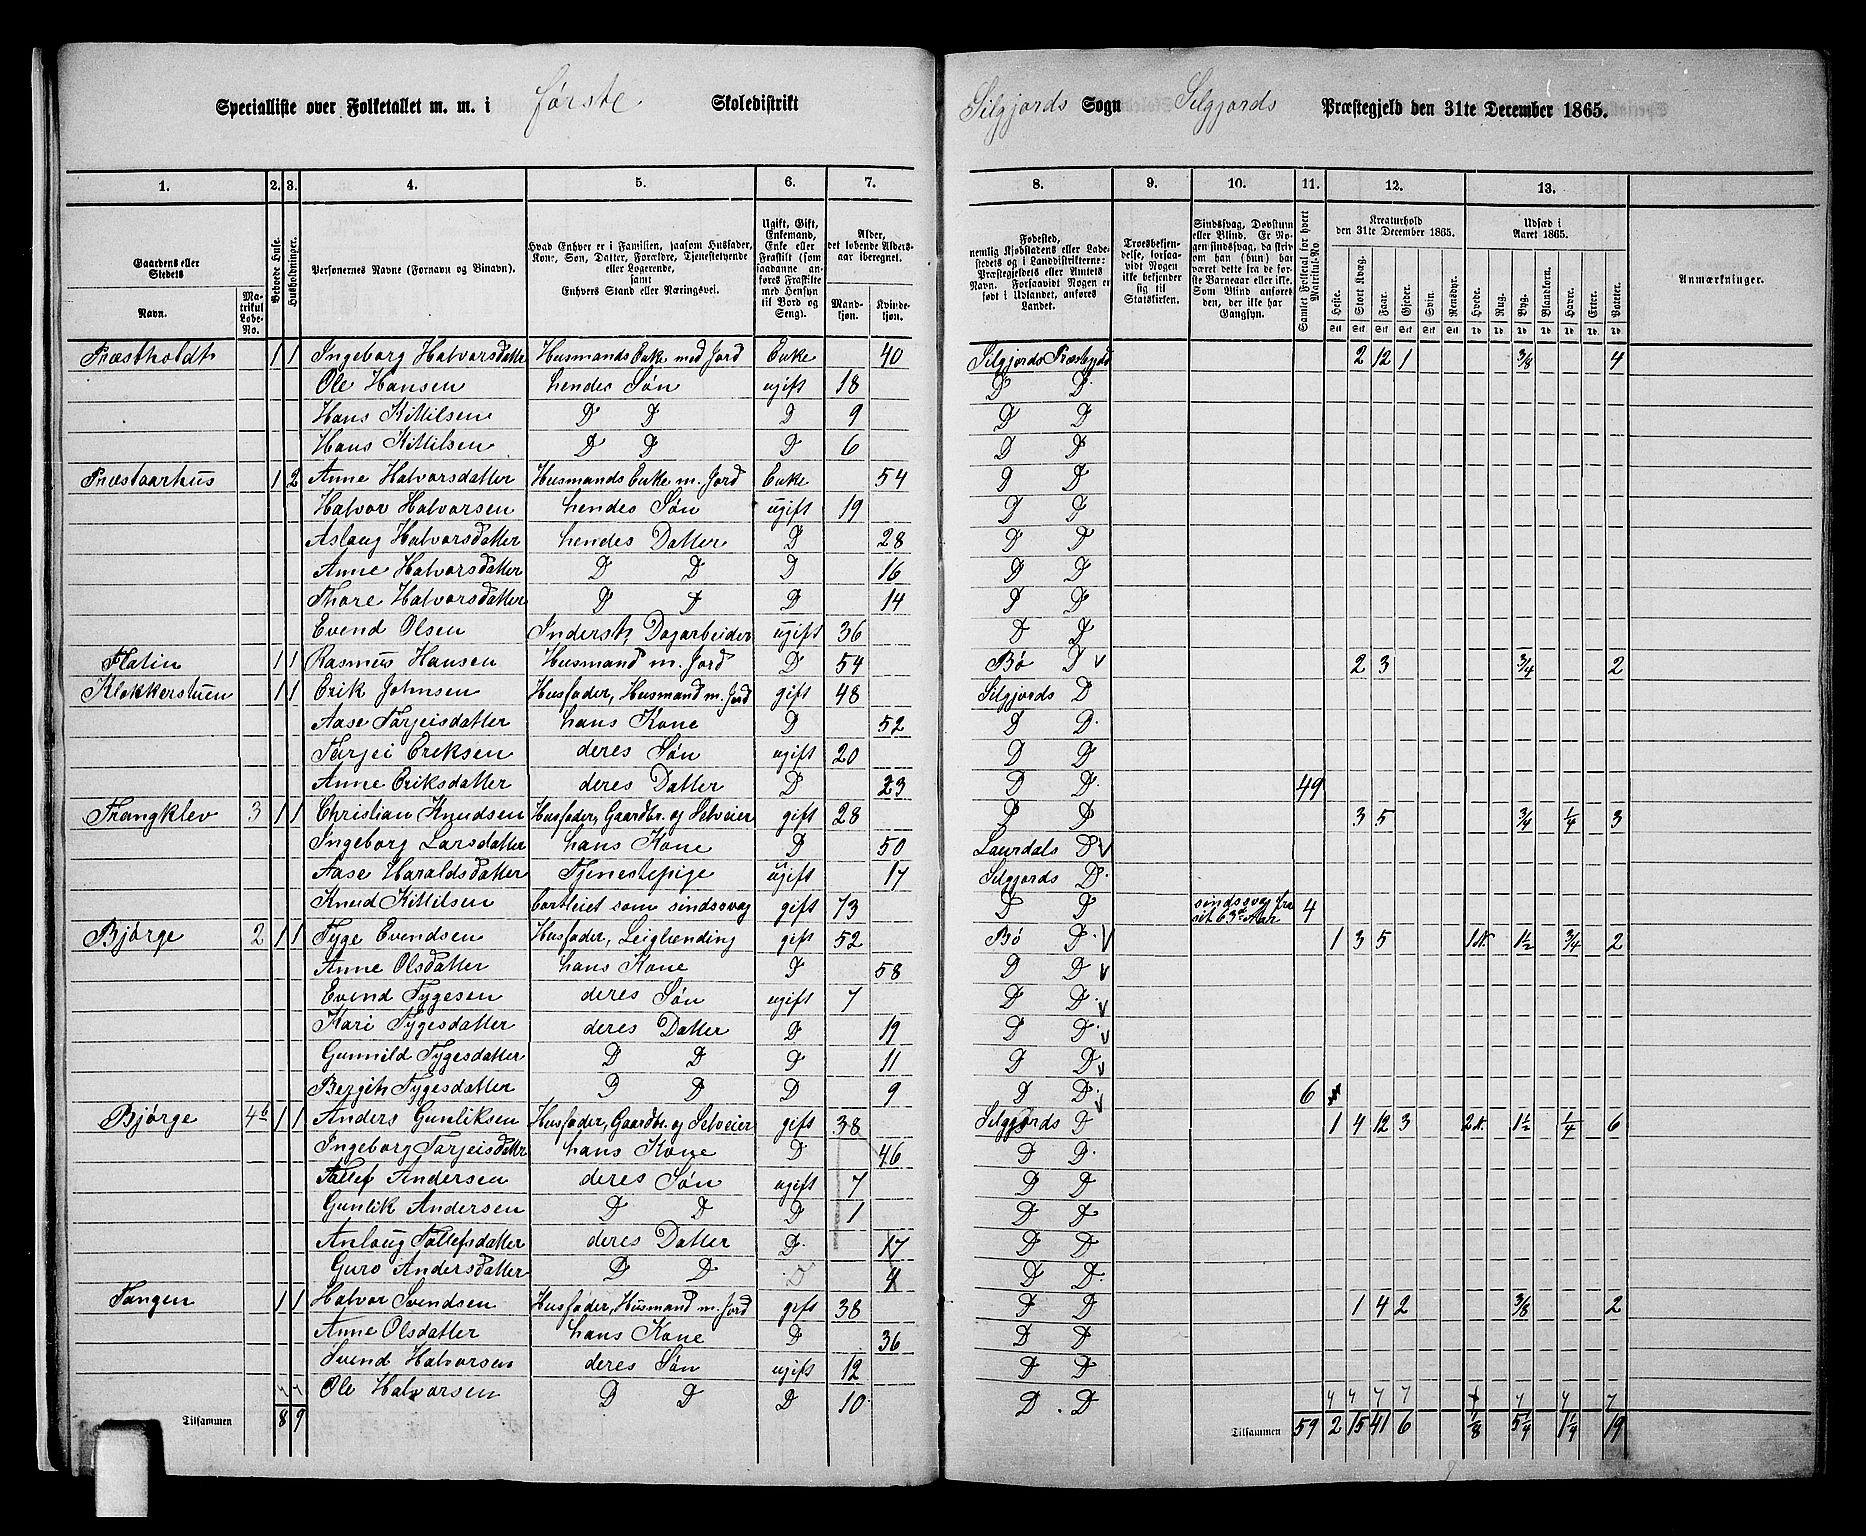 Specialliste over Folketallet m. m. i første Skoledistrikt Silgjords Sogn Silgjords Præstegjeld den 31te December 1865.
1. 2. 3. 4. 5. 6. 7. 8. 9. 10. 11. 12. 13.
Gaardens eller Stedets Navn. Matrikul Løbe-No. Beboede Huse. Husholdninger. Personernes Navne (Fornavn og Binavn). Hvad Enhver er i Familien, saasom Husfader, Kone, Søn, Datter, Forældre, Tjenestetyende eller Logerende, samt Enhvers Stand eller Næringsvei. Ugift, Gift, Enkemand, Enke eller Fraskilt (som saadanne anføres Fraskilte med Hensyn til Bord og Seng). Alder, det løbende Aldersaar iberegnet. Mandkjøn. Kvindekjøn. Fødested, nemlig Kjøbstadens eller Ladestedets og i Landdistrikterne: Præstegjeldets eller Amtets Navn. Forsaavidt Nogen er født i Udlandet, anføres Landet. Troesbekjendelse, forsaavidt Nogen ikke bekjender sig til Statskirken. Sindssvag, Døvstum eller Blind. Er Nogen sindssvag, da skrives om han (hun) har været dette fra de første Barneaar eller ikke. Som Blind ansføres den, der ikke har Gangsyn. Samlet Folketal for hvert Matrikul-No Kreaturhold den 31te December 1865. Heste. Stort Kvæg. Faar. Gjeder. Svin. Rensdyr. Udsæd i Aaret 1865. Hvede. Rug. Byg. Blandkorn. Havre. Erter. Poteter. Anmærkninger.
Præstholdt 1 1 Ingeborg Halvorsdatter Husmands Enke med Jord Enke 40 Silgjords Præstegjeld 2 12 1 3/8 4
Ole Hansen hendes Søn ugift 18 D D
Hans Kittilsen D D D 9 D D
Hans Kittilsen D D D 6 D D
Præstaarhus 1 2 Anne Halvorsdatter Husmands Enke m. Jord Enke 54 D D
Halvor Halvorsen hendes Søn ugift 19 D D
Aslaug Halvorsdatter hendes Datter D 28 D D
Anne Halvorsdatter D D D 16 D D
Thore Halvorsdatter D D D 14 D D
Evend Olsen Inderst, Dagarbeider ugift 36 D D
Flatin 1 1 Rasmus Hansen Husmand m. Jord D 54 Bø D 2 3 3/4 2
Klokkerstuen 1 1 Erik Johnsen Husfader, Husmand m. Jord gift 48 Silgjords D
Aase Tarjeisdatter hans Kone D 52 D D
Tarjei Eriksen deres Søn ugift 20 D D
Anne Eriksdatter deres Datter D 23 D D 49
Trangklev 3 1 1 Christian Knudsen Husfader, Gaardbr. og Selveier gift 28 D D 3 5 3/4 1/4 3
Ingeborg Larsdatter hans Kone D 50 Laurdals D
Aase Haraldsdatter Tjenestepige ugift 17 Silgjords D
Knud Kittilsen bortleiet som sindssvag gift 73 D D sindssvag fra sit 63d Aar 4
Bjørge 2 1 1 Tyge Evendsen Husfader, Leilænding gift 52 Bø D 1 3 5 1 1/2 3/4 2
Anne Olsdatter hans Kone D 58 D D
Evend Tygesen deres Søn ugift 7 D D
Kari Tygesdatter deres Datter D 19 D D
Gunnild Tygesdatter D D D 11 D D
Bergith Tygesdatter D D D 9 D D 6
Bjørge 4b 1 1 Anders Gunliksen Husfader, Gaardbr. og Selveier gift 38 Silgjords D 1 4 12 3 1 1/2 1/4 6
Ingeborg Tarjeisdatter hans Kone D 46 D D
Tallef Andersen deres Søn ugift 7 D D
Gunlik Andersen D D D 1 D D
Anlaug Tallefsdatter deres Datter D 17 D D
Guro Andersdatter D D D 4 D D
Tangen 1 1 Halvor Svendsen Husfader, Husmand m. Jord gift 38 D D 1 4 2 3/8 2
Anne Olsdatter hans Kone D 36 D D
Svend Halvorsen deres Søn ugift 12 D D
Ole Halvorsen D D D 10 D D
Tilsammen 8 9 Tilsammen 59 2 15 41 6 1/8 5 1/4 1 1/4 19